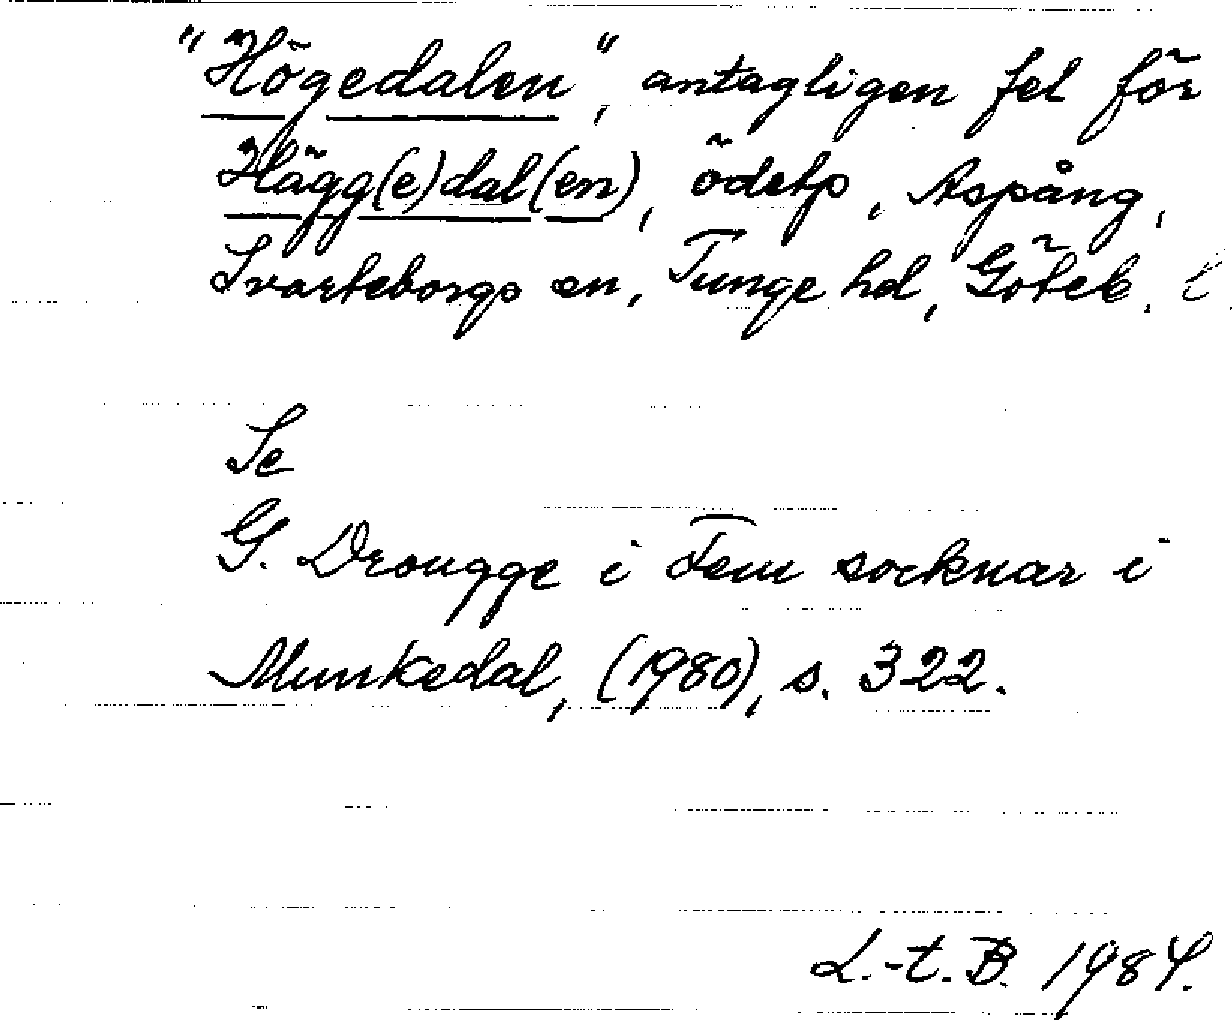 "Högedalen", antagligen fel för
Hägg(e)dal(en), ödetp, Aspång,
Svarteborgs sn, Tunge hd, Göteb. l.
Se
G. Drougge i Fem socknar i
Munkedal, (1980), s. 322.
L.-t. B. 1984.